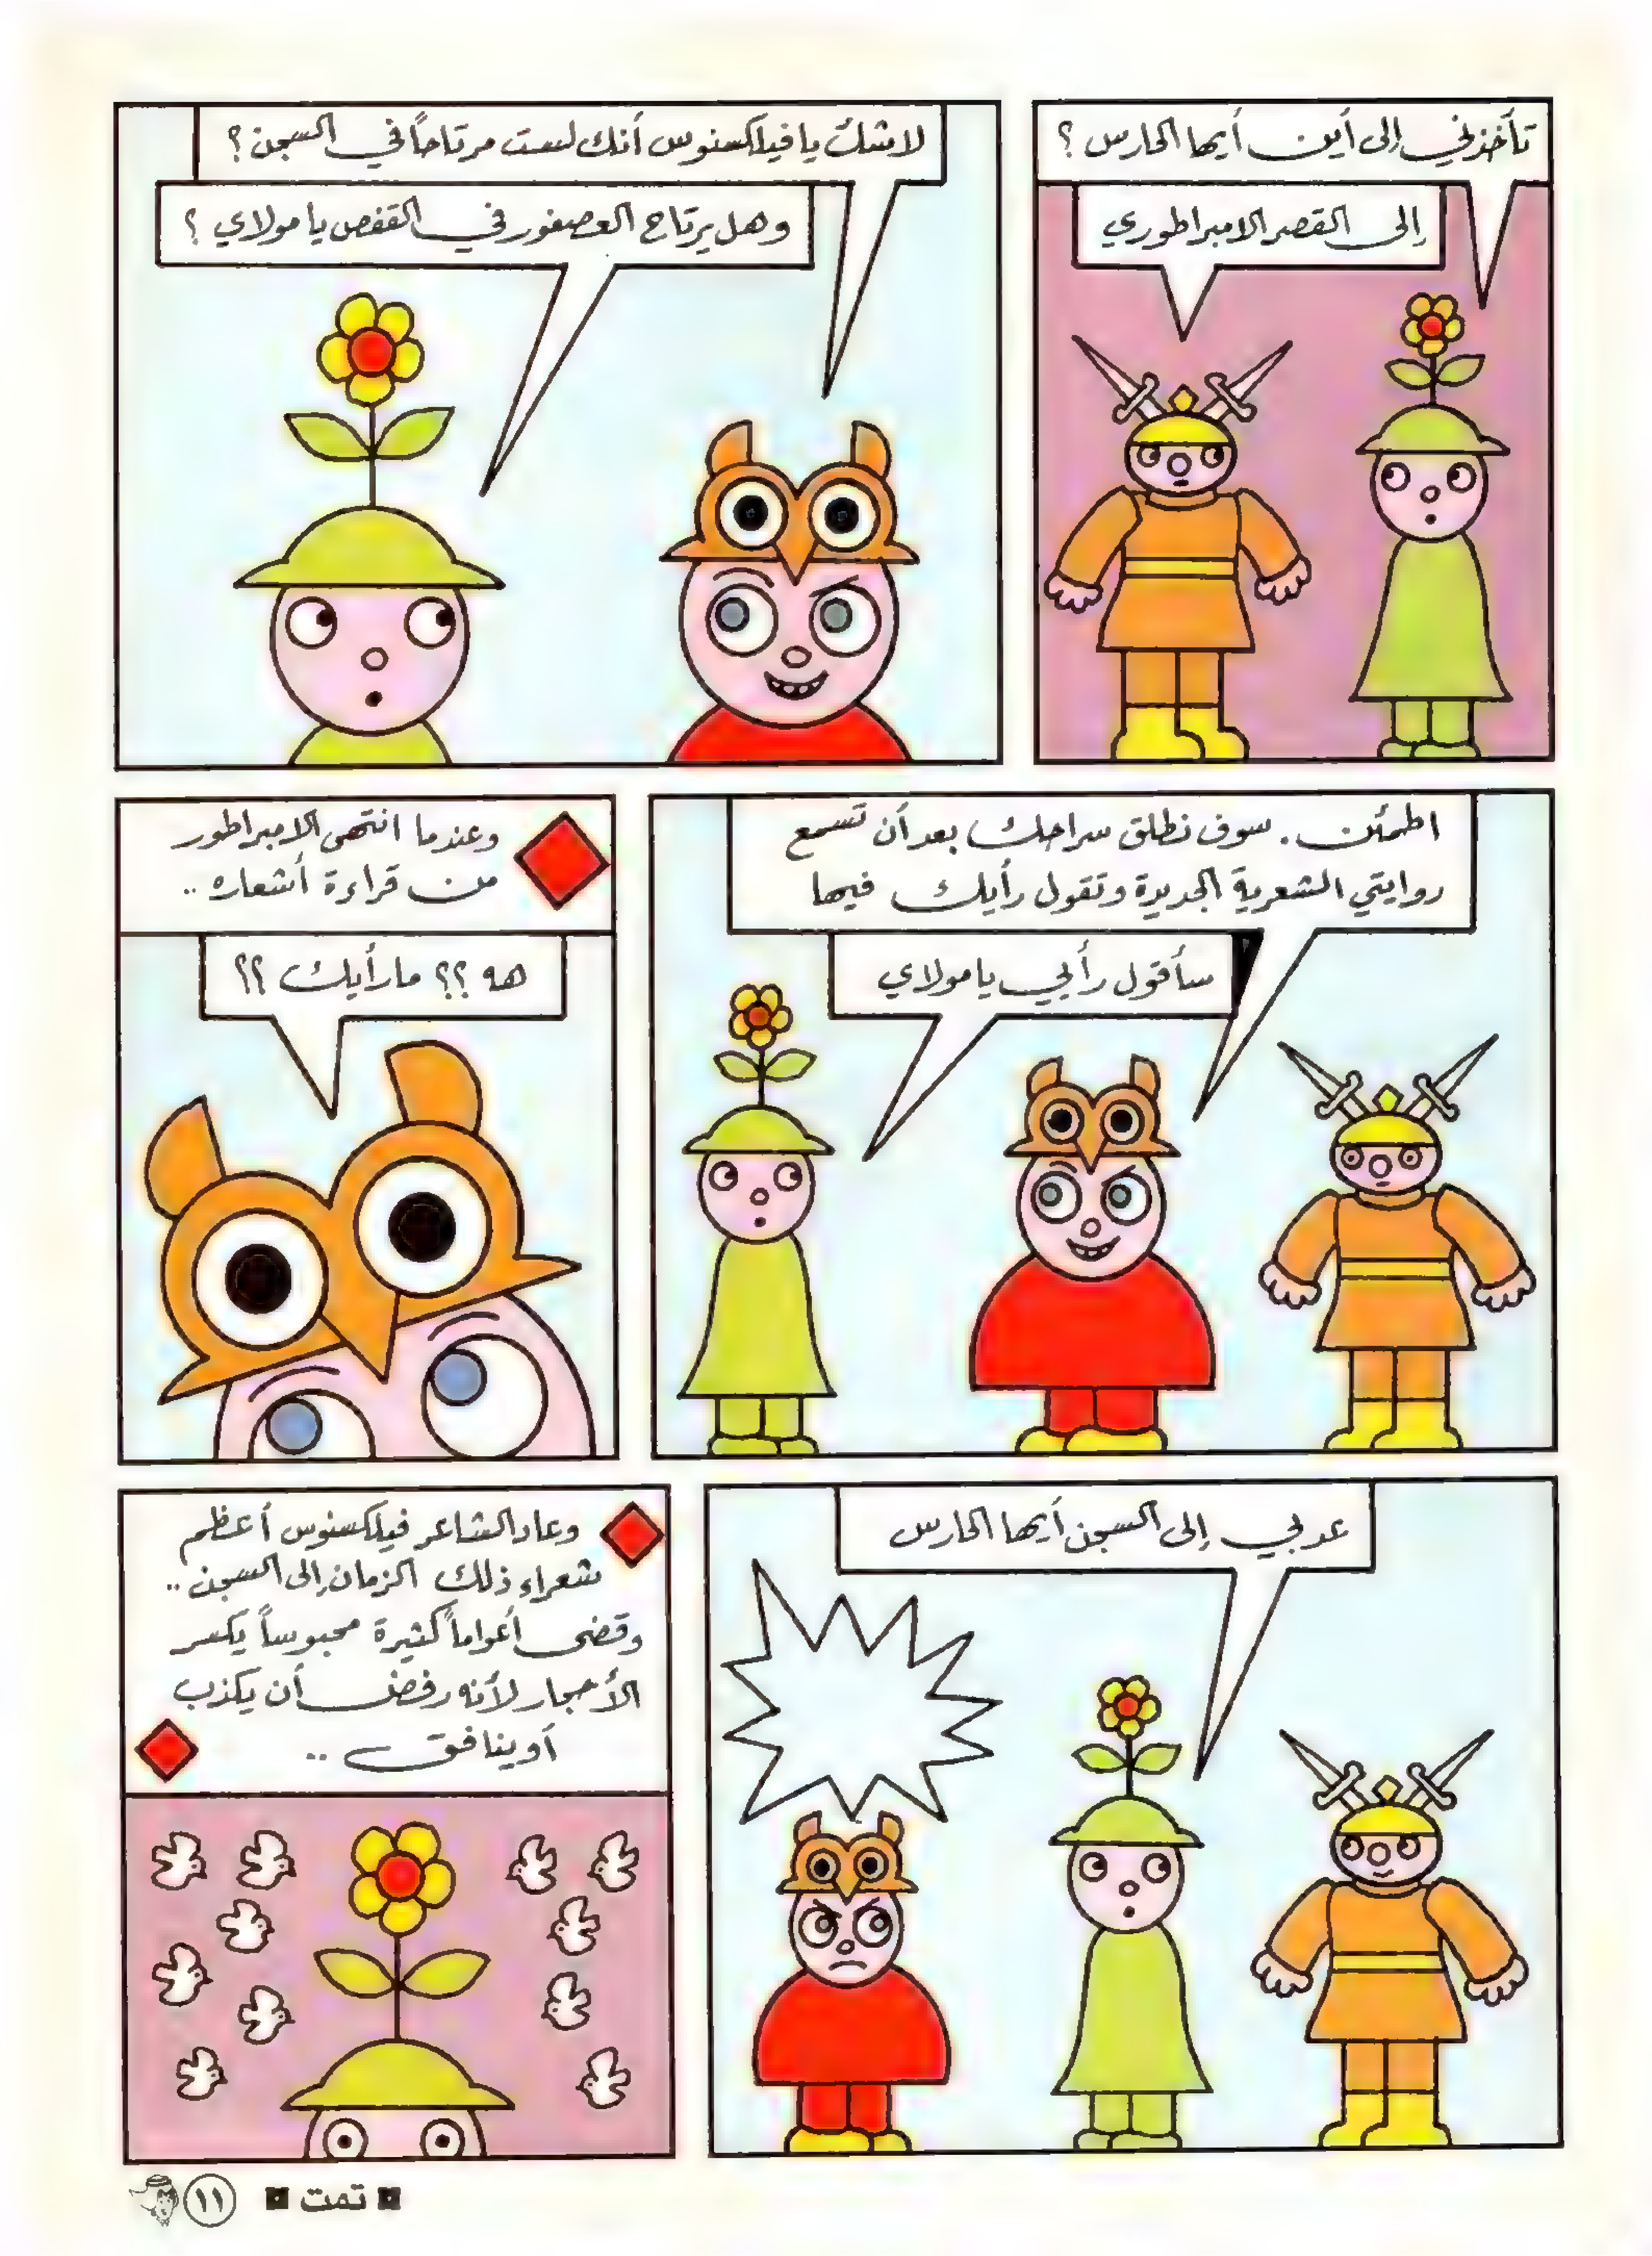 تأخذني إلى أين أيها الحارس ؟
إلى القصر الامبراطوري
لاشك يا فيلكسنوس أنك لست مرتاحاً في السجن ؟
وهل يرتاح العصفور في القفص يا مولاي ؟
اطمئن . سوف نطلق سراحك بعد أن تسمع
روايتي الشعرية الجديدة وتقول رأيك فيها
سأقول رأيي يا مولاي
وعندما انتهى الامبراطور
من قراءة أشعاره ..
هه ؟؟ ما رأيك ؟؟
عد بي إلى السجن أيها الحارس
وعاد الشاعر فيلكسنوس أعظم
شعراء ذلك الزمان إلى السجن ..
وقضى أعواماً كثيرة محبوساً يكسر
الأحجار لأنه رفض أن يكذب
أو ينافق ..
تمت
١١